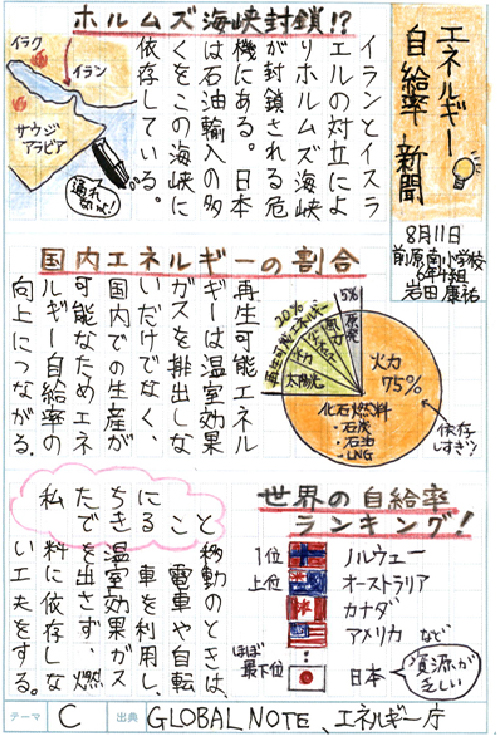 エネルギー
自給率 新聞
8月11日
前原南小学校
6年4組
岩田 康祐
ホルムズ海峡封鎖!?
イラク
イラン
サウジ
アラビア
通れませんよ!
イランとイスラ
エルの対立によ
りホルムズ海峡
が封鎖される危
機にある。日本
は石油輸入の多
くをこの海峡に
依存している。
国内エネルギーの割合
再生可能エネル
ギーは温室効果
ガスを排出しな
いだけでなく、
国内での生産が
可能なためエネ
ルギー自給率の
向上につながる。
5%
原発
20%
再生可能エネルギー
風力
水力
太陽光
火力
75%
化石燃料
・石炭
・石油
・LNG
依存
しすぎ??
世界の自給率
ランキング!
1位 ノルウェー
上位 オーストラリア
カナダ
アメリカ など
ほぼ
最下位 日本
資源が
乏しい
私たちにできること
移動のときは、
電車や自転
車を利用し、
温室効果ガス
を出さず、燃
料に依存しな
い工夫をする。
テーマ C 出典 GLOBAL NOTE、エネルギー庁